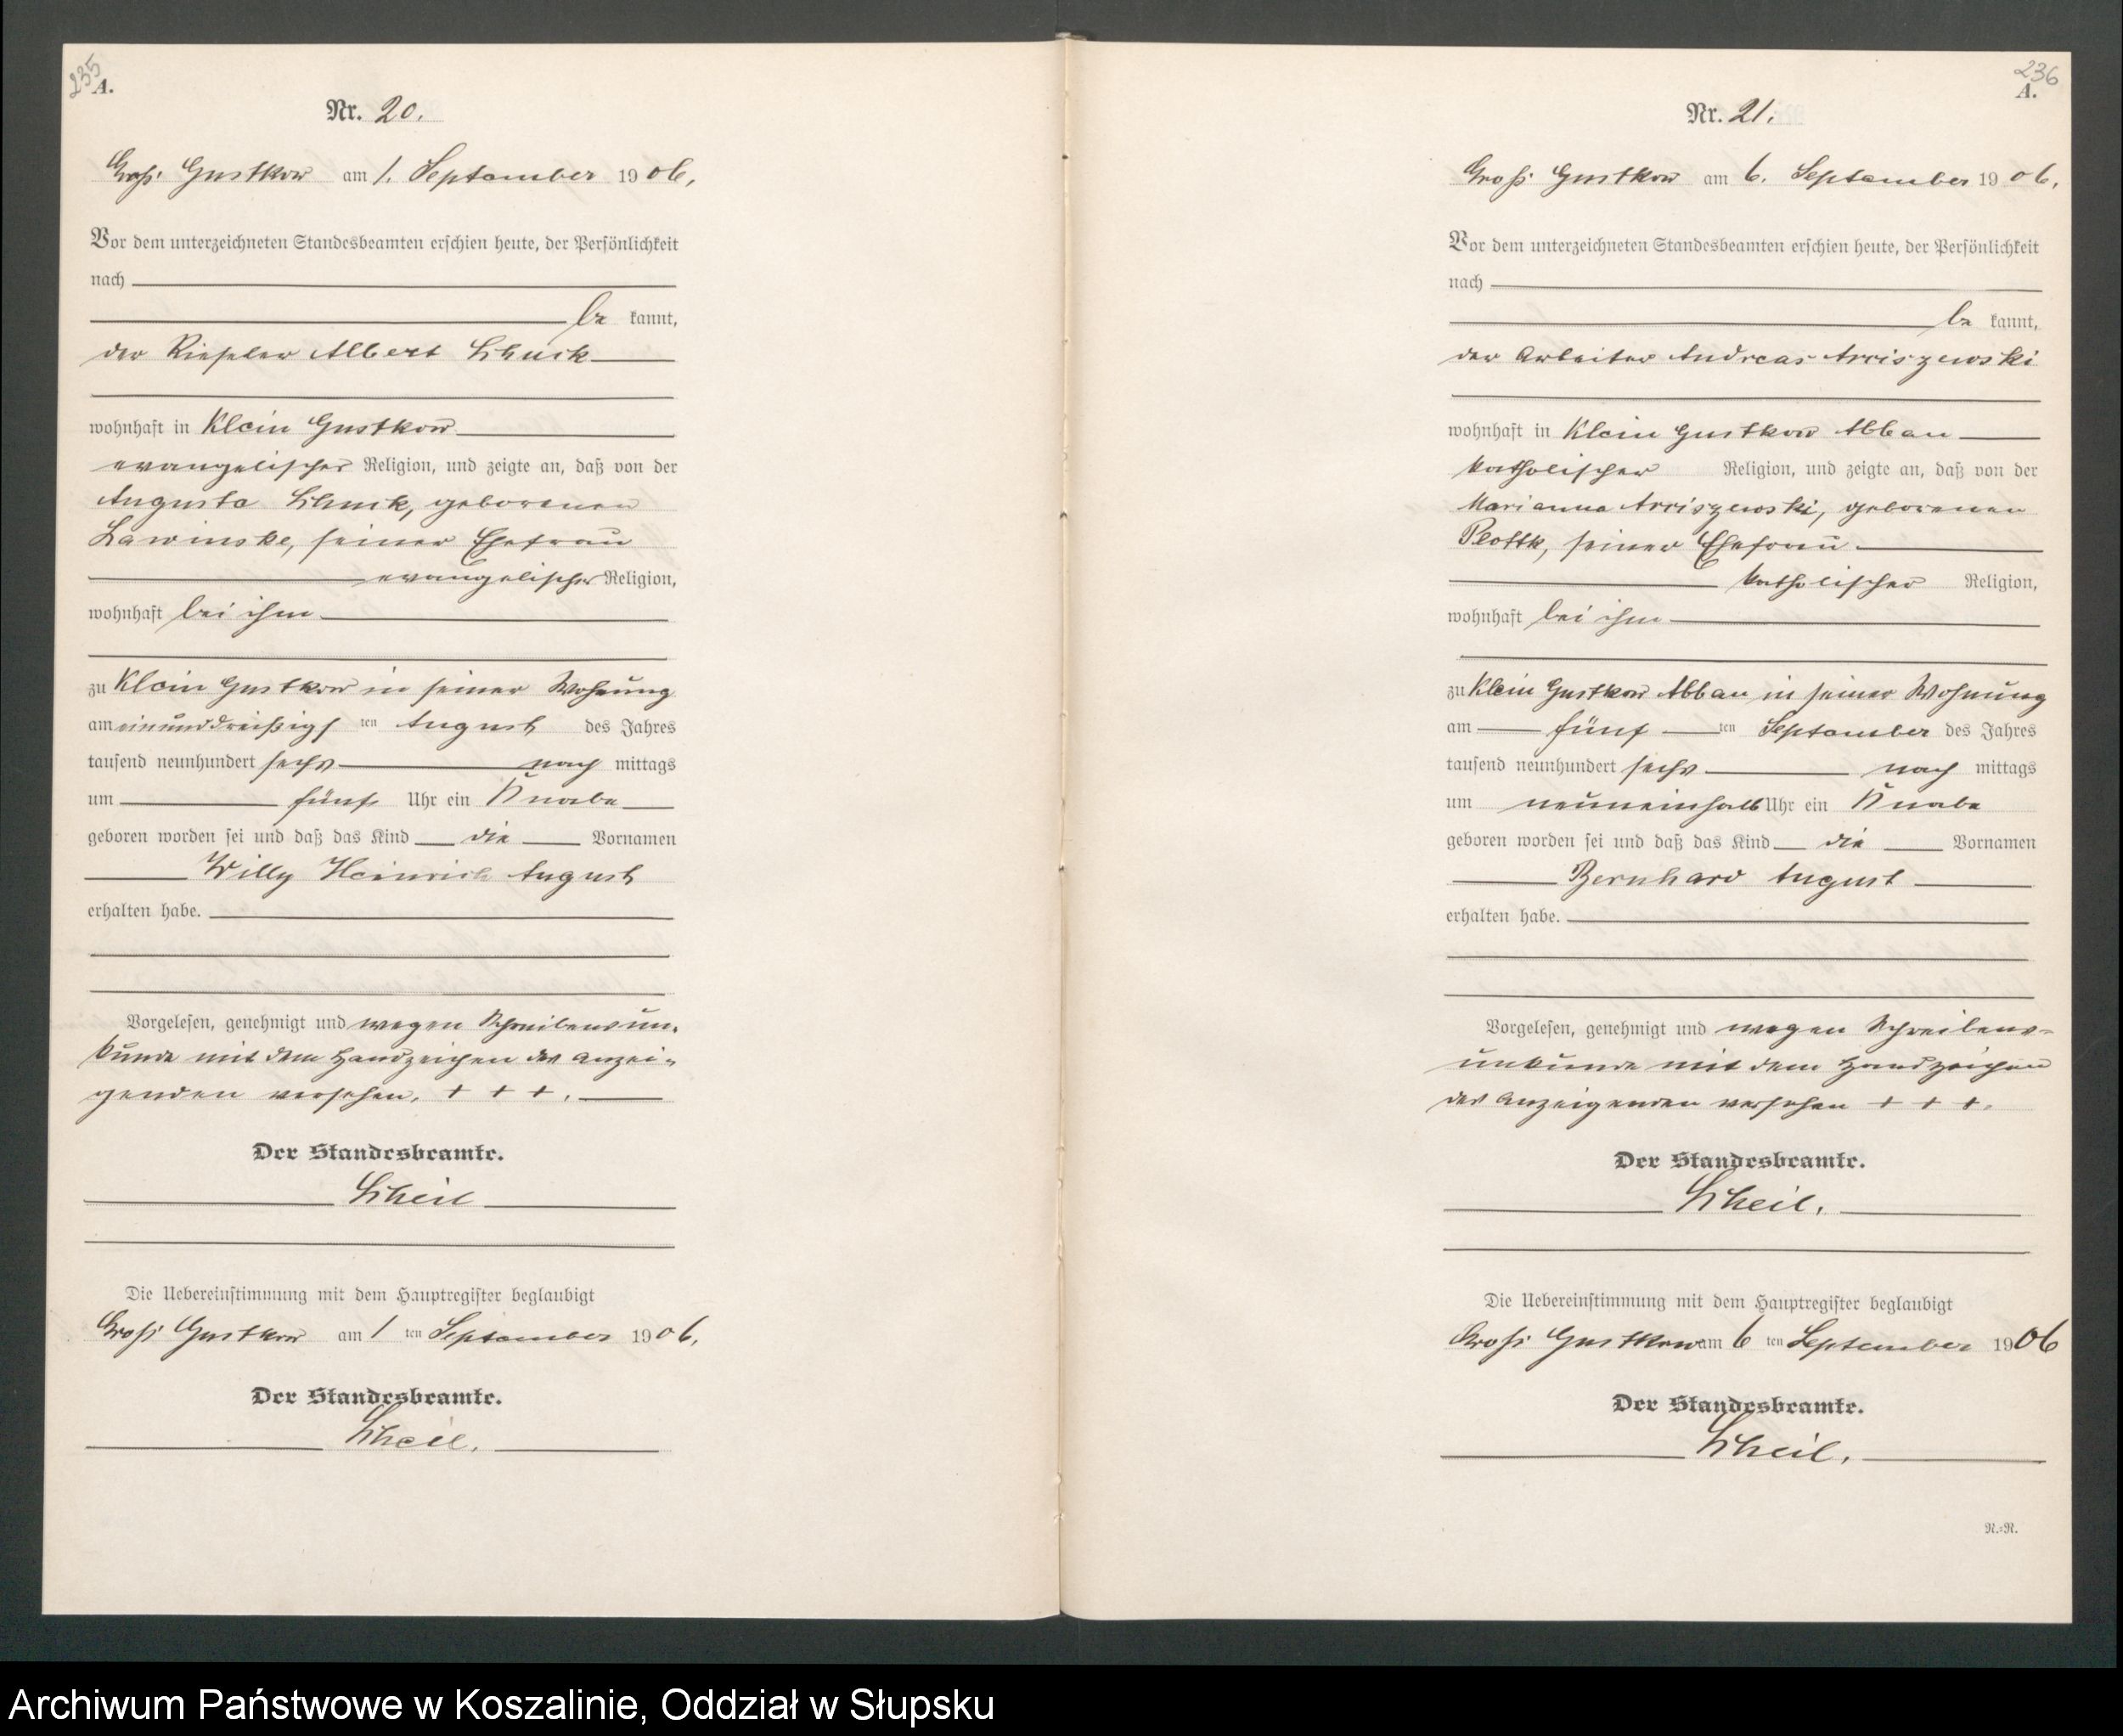 235
A.
Nr. 20.
Groß Gustkow am 1. September 1906,
Vor dem unterzeichneten Standesbeamten erschien heute, der Persönlichkeit
nach
be kannt,
der Rieseler Albert
wohnhaft in Klein Gustkow
evangelischer Religion, und zeigte an, daß von der
Auguste geborenen
Lawinske, seiner Ehefrau
evangelischer Religion,
wohnhaft bei ihm
zu Klein Gustkow in seiner Wohnung
am einunddreißigs ten August des Jahres
tausend neunhundert sechs nach mittags
um fünf Uhr ein Knabe
geboren worden sei und daß das Kind die Vornamen
Willy Heinrich August
erhalten habe.
Vorgelesen, genehmigt und wegen Schreibensun-
kunde mit dem Handzeichen des Anzei-
genden versehen. + + +.
Der Standesbeamte.
Scheil
Die Uebereinstimmung mit dem Hauptregister beglaubigt
Groß Gustkow am 1 ten September 1906.
Der Standesbeamte.
Scheil.
236
A.
Nr. 21.
Groß Gustkow am 6. September 1906.
Vor dem unterzeichneten Standesbeamten erschien heute, der Persönlichkeit
nach
be kannt,
der Arbeiter Andreas Arciszewski
wohnhaft in Klein Gustkow Abbau
katholischer Religion, und zeigte an, daß von der
Marianna Arciszewski, geborenen
Plottk, seiner Ehefrau
katholischer Religion,
wohnhaft bei ihm
zu Klein Gustkow Abbau in seiner Wohnung
am fünf ten September des Jahres
tausend neunhundert sechs nach mittags
um neuneinhalb Uhr ein Knabe
geboren worden sei und daß das Kind die Vornamen
Bernhard August
erhalten habe.
Vorgelesen, genehmigt und wegen Schreibens-
unkunde mit dem Handzeichen
des Anzeigenden versehen + + +.
Der Standesbeamte.
Scheil.
Die Uebereinstimmung mit dem Hauptregister beglaubigt
Groß Gustkow am 6 ten September 1906
Der Standesbeamte.
Scheil.
N.=N.
Archiwum Państwowe w Koszalinie, Oddział w Słupsku